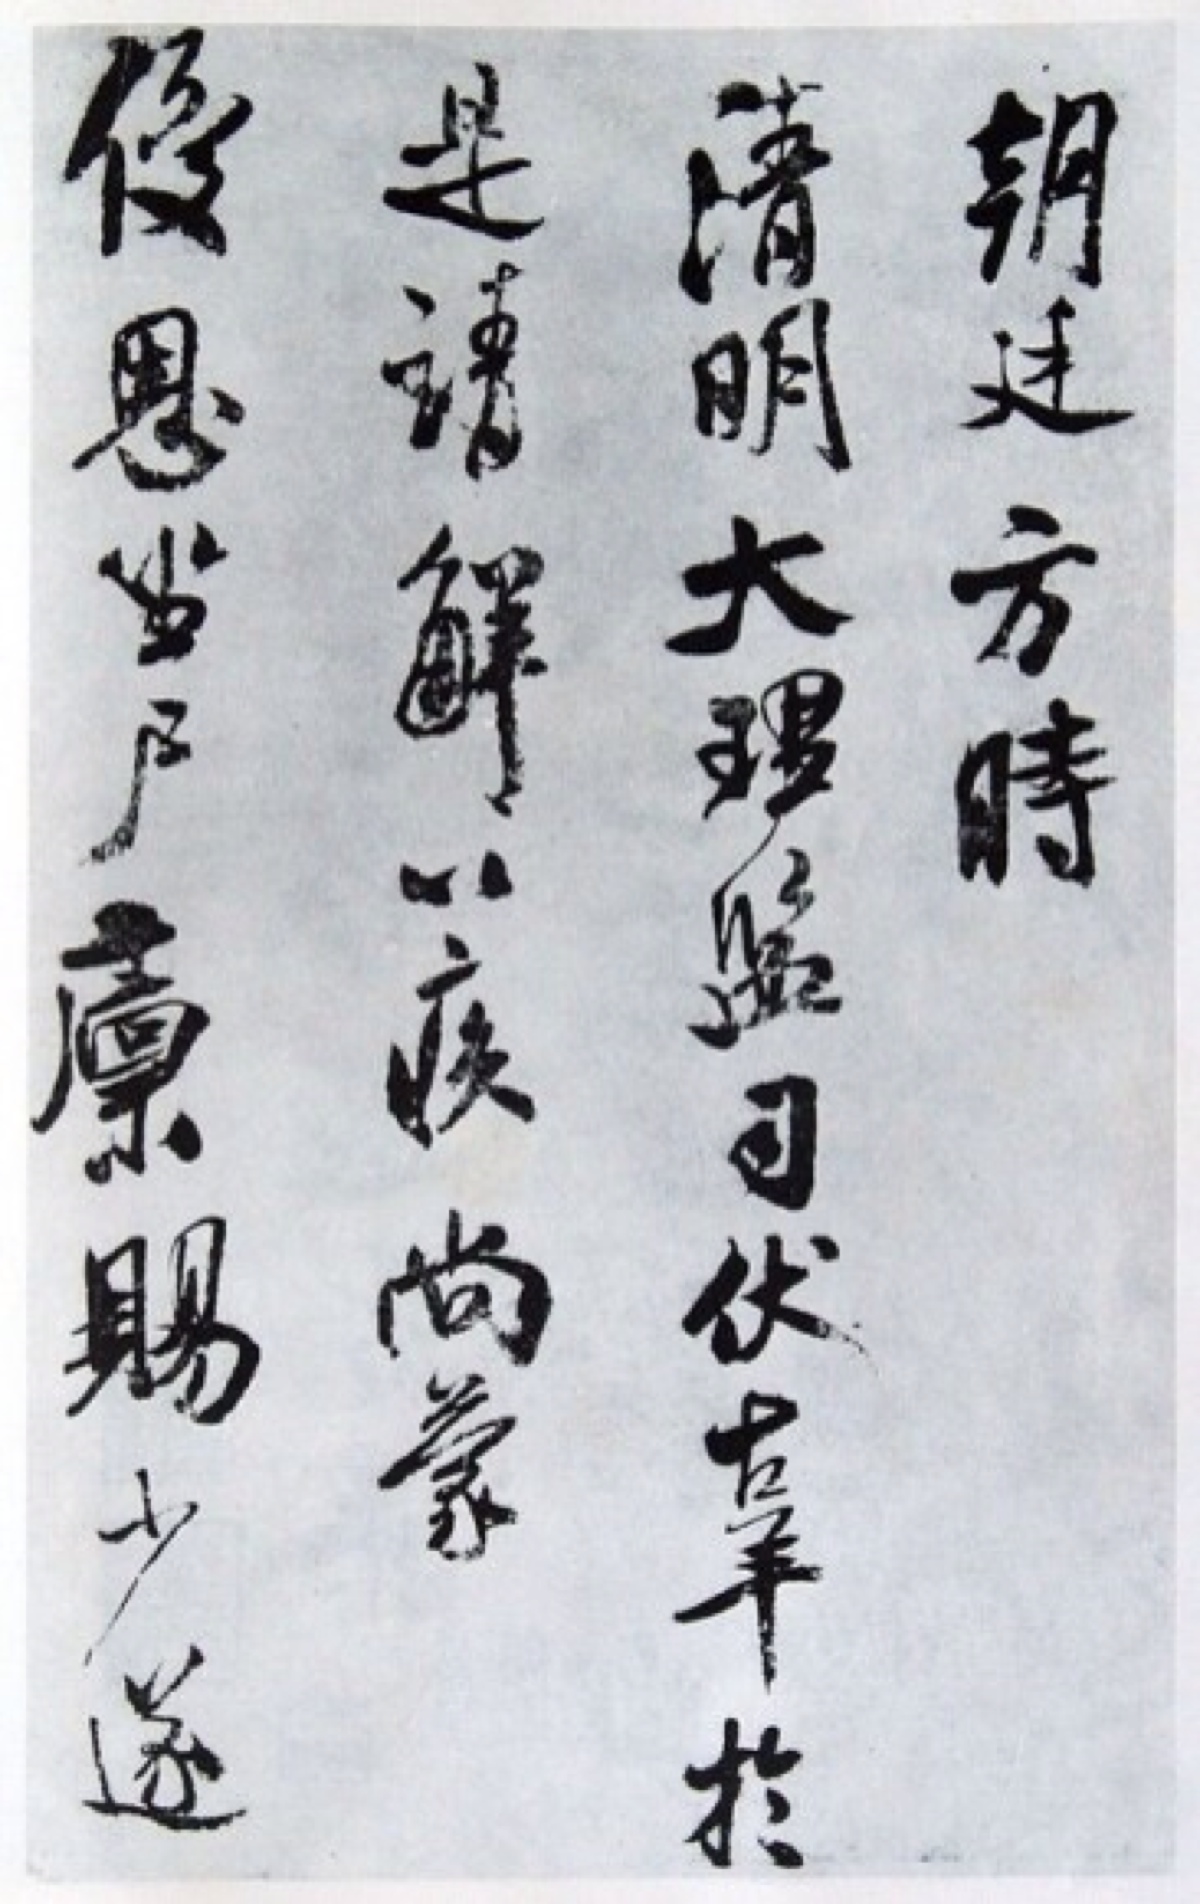 朝廷方時
清明大理監司伏辜於
是請解以疾尚蒙
優恩當戶廩賜少遂